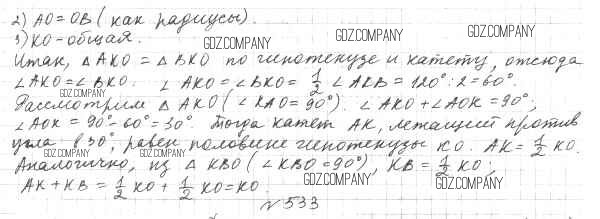 2) AO = OB (как радиусы).
3) KO - общая. GDZ.COMPANY GDZ.COMPANY
Итак, △AKO = △BKO по гипотенузе и катету, отсюда
∠AKO = ∠BKO. ∠AKO = ∠BKO = 1/2 ∠AKB = 120° : 2 = 60°.
GDZ.COMPANY
Рассмотрим △AKO (∠KAO = 90°). ∠AKO + ∠AOK = 90°,
∠AOK = 90° - 60° = 30°. Тогда катет AK, лежащий против
угла в 30°, равен половине гипотенузы KO. AK = 1/2 KO.
GDZ.COMPANY GDZ.COMPANY GDZ.COMPANY
Аналогично, из △KBO (∠KBO = 90°), KB = 1/2 KO;
AK + KB = 1/2 KO + 1/2 KO = KO. GDZ.COMPANY GDZ.COMPANY
№533